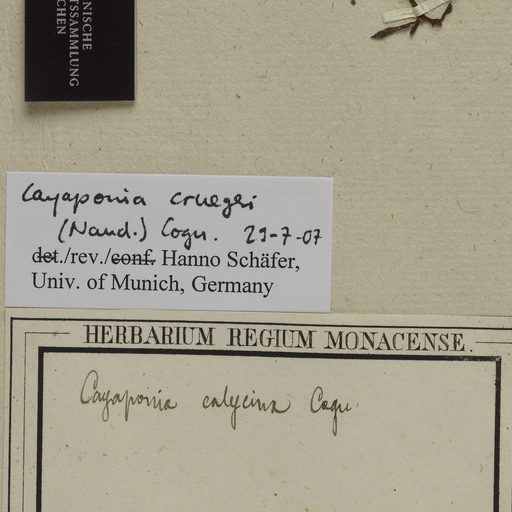 NISCHE
TSSAMMLUNG
CHEN
Cayaponia cruegeri
(Naud.) Cogn. 29-7-07
det./rev./conf. Hanno Schäfer,
Univ. of Munich, Germany
HERBARIUM REGIUM MONACENSE.
Cayaponia calycina Cogn.